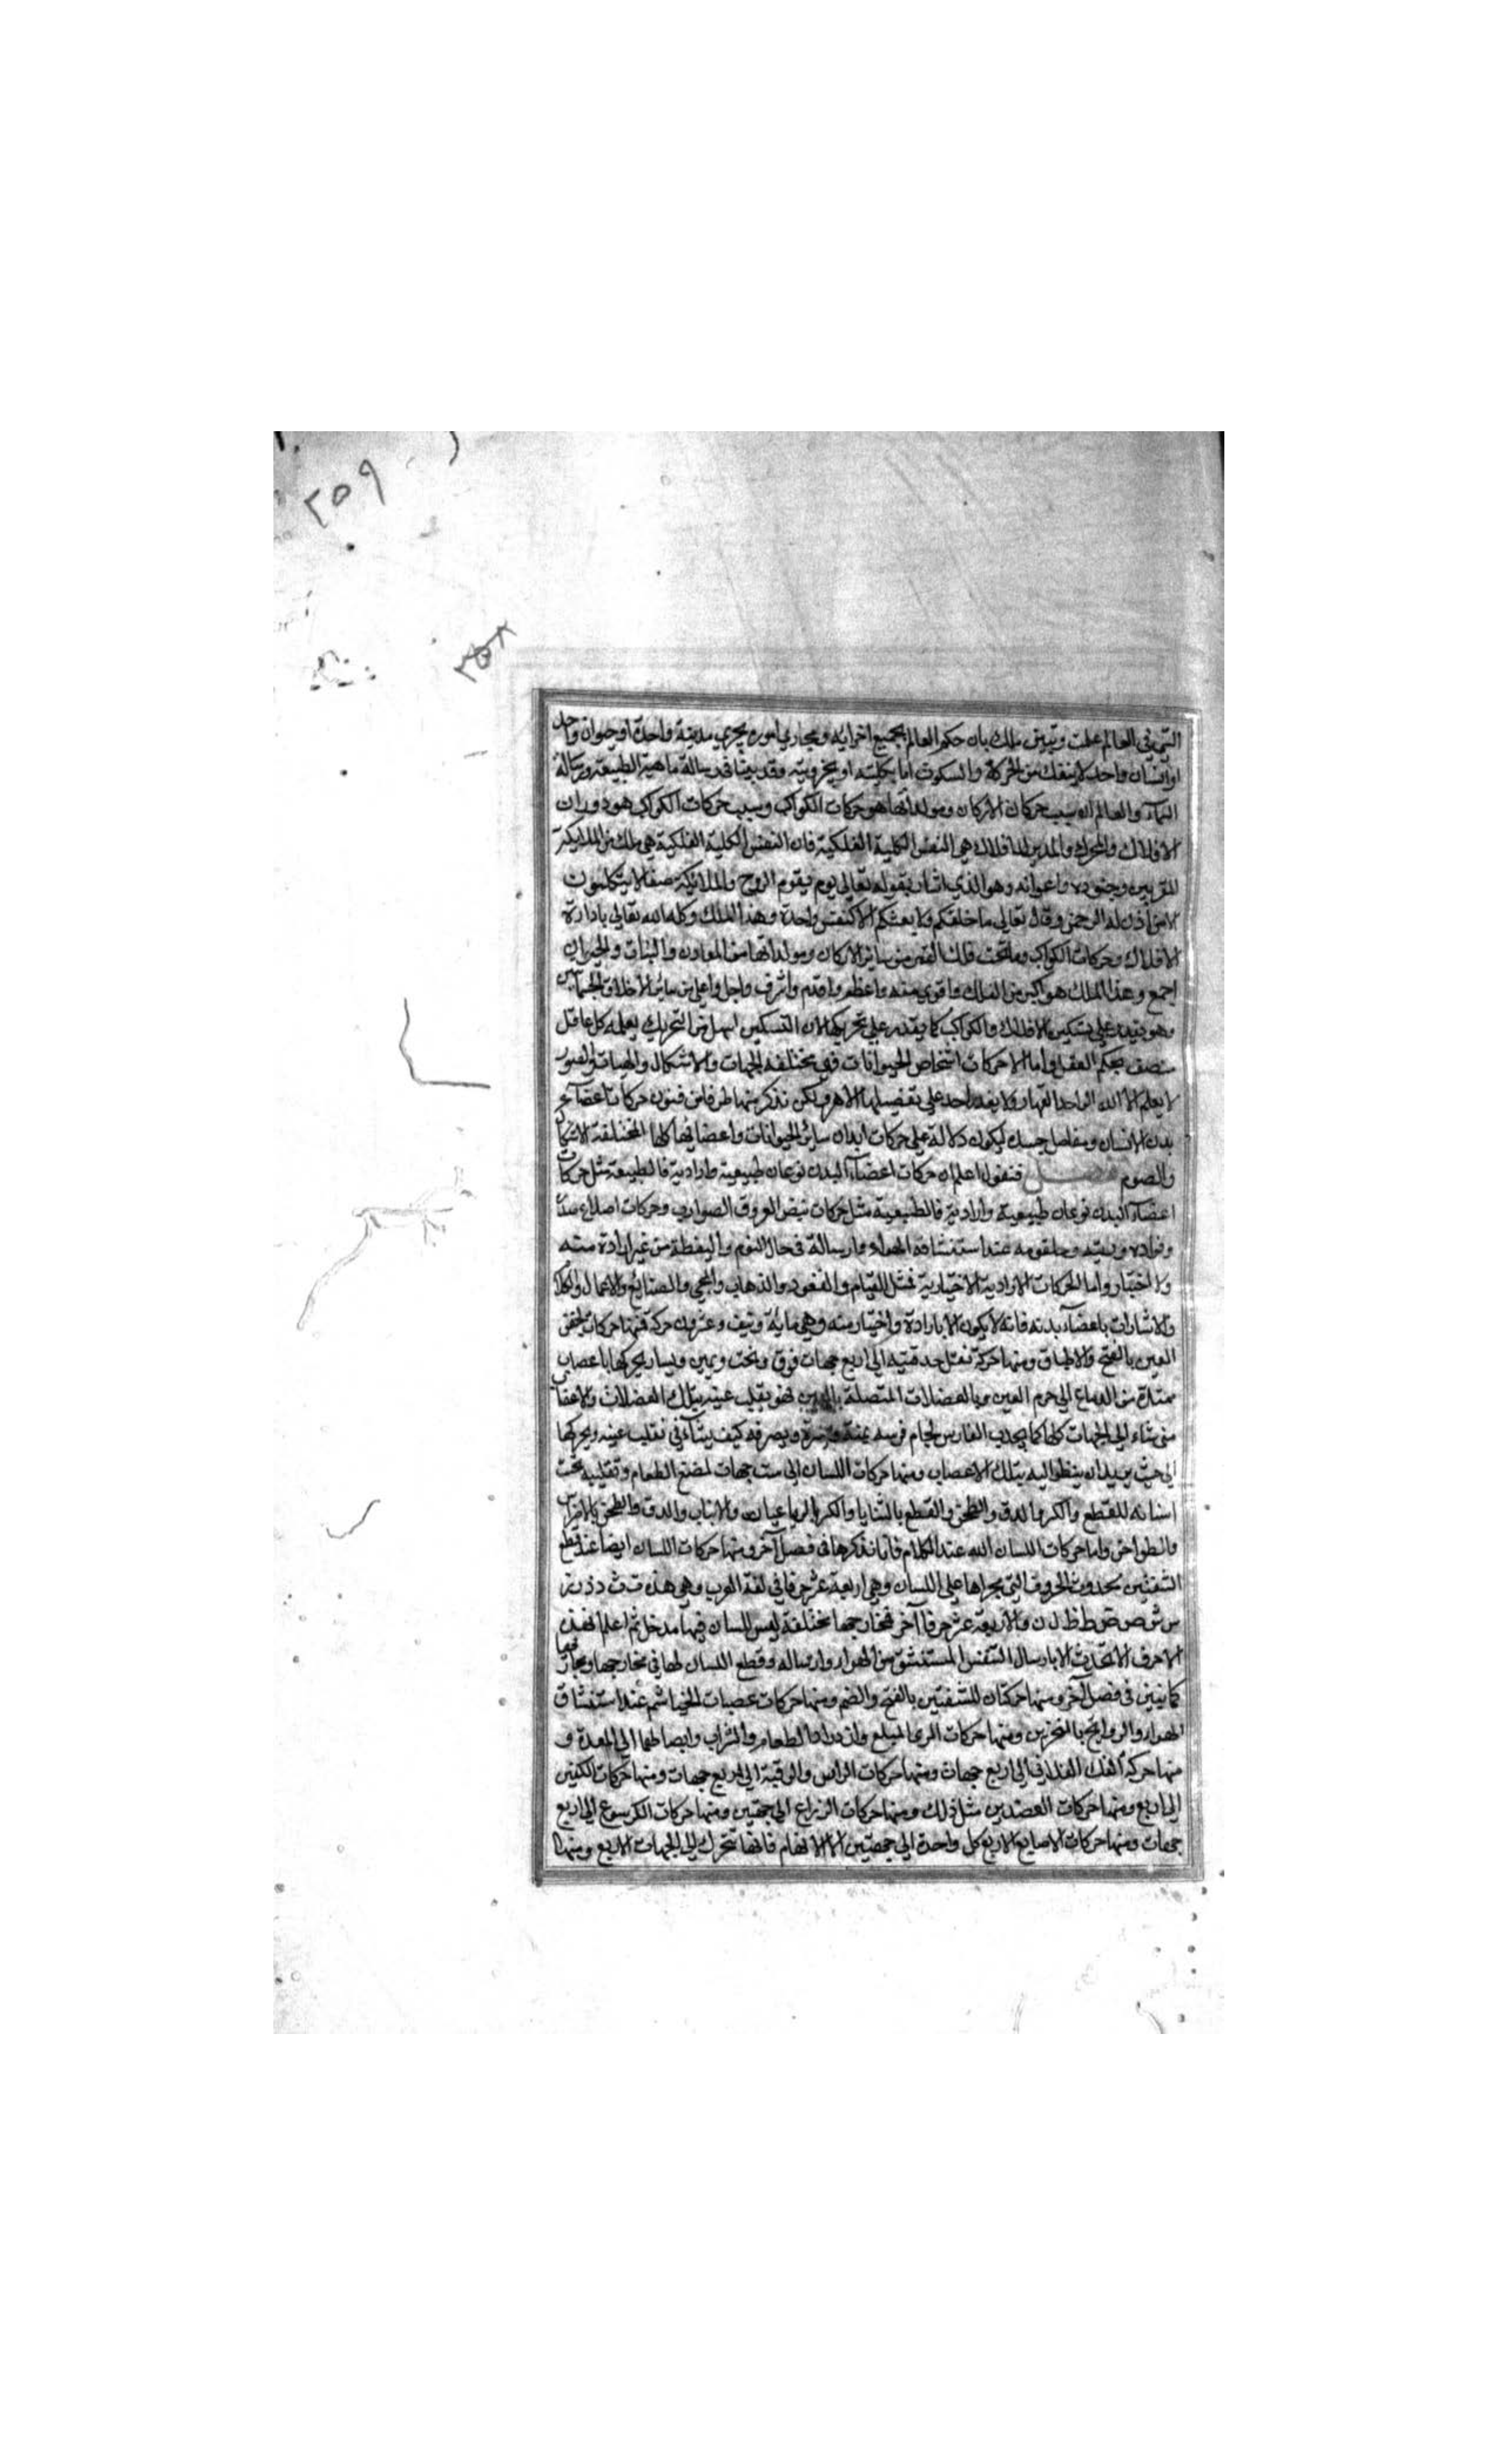 ٢٥٩
٢٥٨
التي في العالم علمت وتبين ملك بان حكم العالم بجميع اجزائه ومجاري اموره يجري مدينة واحدة او حيوان واحد
او انسان واحد لا ينفك من الحركة والسكون اما بكليته او بجزويته وقد بينا في رسالة ماهية الطبيعة ورسالة
السمآء والعالم ان سبب حركات الاركان ومولداتها هو حركات الكواكب وسبب حركات الكواكب هو دوران
الافلاك والمحرك والمدير للافلاك هي النفس الكلية الفلكية فان النفس الكلية الفلكية هي ملك من الملايكة
المقربين وجنوده واعوانه وهو الذي اشار بقوله تعالى يوم يقوم الروح والملائكة صفا لا يتكلمون
الا من اذن له الرحمن وقال تعالى ما خلقكم ولا بعثكم الا كنفس واحدة وهذا الملك وكله الله تعالى بادارة
الافلاك وحركات الكواكب وما تحت فلك القمر من سائر الاركان ومولداتها من المعادن والنبات والحيوان
اجمع وهذا الملك هو اكبر من الفلك واقوى منه واعظم واقدم واشرف واجل واعلى من سائر الاخلاق
وهو يقدر على تسكين الافلاك والكواكب كما يقدر على تحريكها لان التسكين اسهل من التحريك يعلمه كل عاقل
منصف بحكم العقل واما الاحركات اشخاص الحيوانات فهي مختلفة الجهات والاشكال والهيات والصور
لا يعلم الا الله الواحد القهار ولا يقدر احد على تفصيلها الا هو ولكن نذكر منها طرفا من فنون حركات اعضآء
بدن الانسان ومفاصل جسده ليكون دلالة على حركات ابدان سائر الحيوانات واعضائها كلها المختلفة الاشكال
والصوم فصل فنقول اعلم ان حركات اعضآء البدن نوعان طبيعية وارادية فالطبيعة مثل حركات
اعضآء البدن نوعان طبيعية وارادية فالطبيعية مثل حركات نبض العروق الضوارب وحركات اضلاع
وفواده وريته وحلقومه عند استنشاقه الهواء وارسالة في حال النوم واليقظة من غير ارادة منه
ولا اختيار واما الحركات الارادية الاختيارية فمثل القيام والقعود والذهاب والمجي والصنايع والاعمال والكلام
والاشارات باعضآء بدنه فانه لا يكون الا بارادة واختيار منه وهي ماية ونيف وعشرون حركة فمنها حركات الجفن
العين بالفتح والاطباق ومنها حركة نقل حدقتيه الى اربع جهات فوق وتحت ويمين ويسار يحركها باعصاب
ممتدة من الدماغ الى جرم العين وبالعضلات المتصلة بالعين فهو يقلب عينه بتلك العضلات والاعصاب
متى شاء الى الجهات كلها كما يجذب الفارس لجام فرسه يمنة ويسرة ويصرفه كيف يشآء في تقليب عينه ويحركها
الى حيث يريد ان ينظر اليه بتلك الاعصاب ومنها حركات اللسان الى ست جهات لمضغ الطعام وتقليبه تحت
اسنانه للقطع والكر والدق والطحن والقطع بالثنايا والكر بالرباعيات والانياب والدق والطحن بالاضراس
والطواحن واما حركات اللسان الله عند الكلام فانا نذكرها في فصل آخر ومنها حركات اللسان ايضا عند قطع
الشفتين بحدوث الحروف التي مجراها على اللسان وهي اربعة عشر حرفا في لغة العرب وهي هذه ت ث د ذ ر ز
س ش ص ض ط ظ ل ن والاربعة عشر حرفا آخر فمخارجها مختلفة ليس للسان فيها مدخل ثم اعلم ان هذه
الاحرف لا تحدث الا بارسال التنفس المستنشق من الهواء وارساله وقطع اللسان لها في مخارجها ومجاريها
كما نبين في فصل آخر ومنها حركتان للشفتين بالفتح والضم ومنها حركات عصبات الخياشم عند استنشاق
الهواء والروايح بالمنخرين ومنها حركات المري المبلع وازدراد الطعام والشراب وايصالهما الى المعدة و
منها حركة الفك الى اربع جهات ومنها حركات الراس والرقبة الى اربع جهات ومنها حركات الكتفين
الى اربع ومنها حركات العضدين مثل ذلك ومنها حركات الزراع الى جهتين ومنها حركات الكرسوع الى اربع
جهات ومنها حركات الاصابع الاربع كل واحدة الى جهتين الا الابهام فانها تتحرك الى الجهات الاربع ومنها